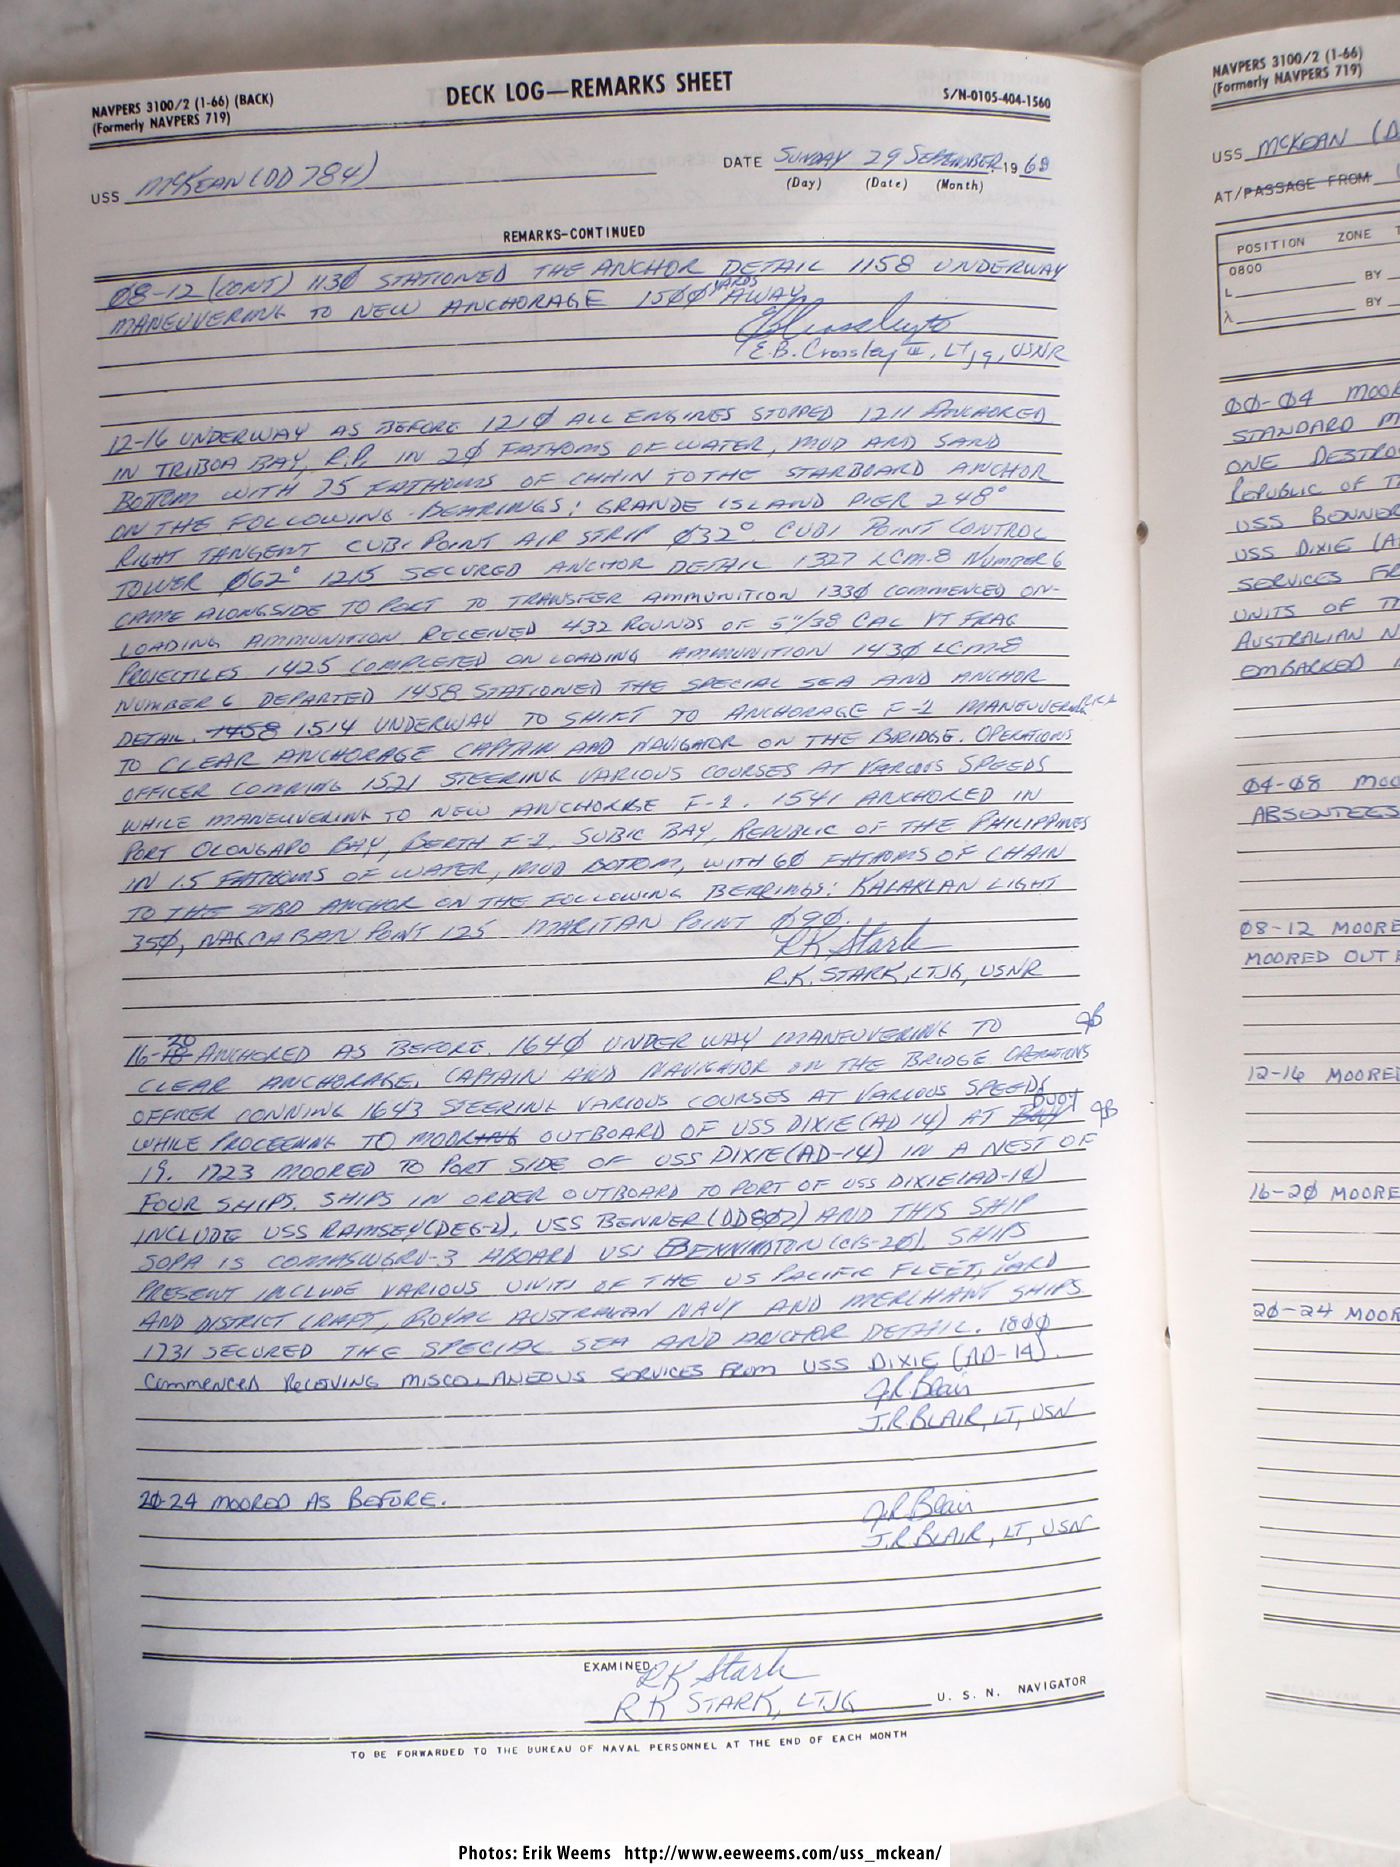 NAVPERS 3100/2 (1-66) (BACK)
(Formerly NAVPERS 719)
DECK LOG—REMARKS SHEET
S/N-0105-404-1560
USS MCKEAN (DD 784)
DATE SUNDAY 29 SEPTEMBER, 19 68
(Day) (Date) (Month)
REMARKS-CONTINUED
Ø8-12 (CONT) 113Ø STATIONED THE ANCHOR DETAIL 1158 UNDERWAY
MANEUVERING TO NEW ANCHORAGE 15ØØ YARDS AWAY
E.B. Crossley III, LTjg, USNR
12-16 UNDERWAY AS BEFORE 121Ø ALL ENGINES STOPPED 1211 ANCHORED
IN TRIBOA BAY, R.P. IN 2Ø FATHOMS OF WATER, MUD AND SAND
BOTTOM WITH 75 FATHOMS OF CHAIN TO THE STARBOARD ANCHOR
ON THE FOLLOWING BEARINGS: GRANDE ISLAND PIER 248°
RIGHT TANGENT CUBI POINT AIR STRIP Ø32° CUBI POINT CONTROL
TOWER Ø62° 1215 SECURED ANCHOR DETAIL 1327 LCM-8 NUMBER 6
CAME ALONGSIDE TO PORT TO TRANSFER AMMUNITION 133Ø COMMENCED ON-
LOADING AMMUNITION RECEIVED 432 ROUNDS OF 5"/38 CAL VT FRAG
PROJECTILES 1425 COMPLETED ON LOADING AMMUNITION 143Ø LCM-8
NUMBER 6 DEPARTED 1458 STATIONED THE SPECIAL SEA AND ANCHOR
DETAIL. 1458 1514 UNDERWAY TO SHIFT TO ANCHORAGE F-2 MANEUVERING
TO CLEAR ANCHORAGE CAPTAIN AND NAVIGATOR ON THE BRIDGE. OPERATIONS
OFFICER CONNING 1521 STEERING VARIOUS COURSES AT VARIOUS SPEEDS
WHILE MANEUVERING TO NEW ANCHORAGE F-2. 1541 ANCHORED IN
PORT OLONGAPO BAY, BERTH F-2, SUBIC BAY, REPUBLIC OF THE PHILIPPINES
IN 15 FATHOMS OF WATER, MUD BOTTOM, WITH 6Ø FATHOMS OF CHAIN
TO THE STBD ANCHOR ON THE FOLLOWING BERRINGS: KALAKLAN LIGHT
35Ø, NAGCABAN POINT 125 MARITAN POINT Ø9Ø.
RK Stark
R.K. STARK, LTJG, USNR
16-18 20 ANCHORED AS BEFORE. 164Ø UNDER WAY MANEUVERING TO JB
CLEAR ANCHORAGE. CAPTAIN AND NAVIGATOR ON THE BRIDGE OPERATIONS
OFFICER CONNING 1643 STEERING VARIOUS COURSES AT VARIOUS SPEEDS
WHILE PROCEEDING TO MOORING OUTBOARD OF USS DIXIE (AD 14) AT BUOY JB
19. 1723 MOORED TO PORT SIDE OF USS DIXIE (AD-14) IN A NEST OF
FOUR SHIPS. SHIPS IN ORDER OUTBOARD TO PORT OF USS DIXIE (AD-14)
INCLUDE USS RAMSEY (DEG-2), USS BENNER (DD807) AND THIS SHIP
SOPA IS COMASWGRU-3 ABOARD USS BENNINGTON (CVS-2Ø). SHIPS
PRESENT INCLUDE VARIOUS UNITS OF THE US PACIFIC FLEET, YARD
AND DISTRICT CRAFT, ROYAL AUSTRALIAN NAVY AND MERCHANT SHIPS.
1731 SECURED THE SPECIAL SEA AND ANCHOR DETAIL. 18ØØ
COMMENCED RECEIVING MISCELLANEOUS SERVICES FROM USS DIXIE (AD-14).
J.R. Blair
J.R. BLAIR, LT, USN
2Ø-24 MOORED AS BEFORE.
J.R. Blair
J.R. BLAIR, LT, USN
EXAMINED:
RK Stark
R K STARK, LTJG U. S. N. NAVIGATOR
TO BE FORWARDED TO THE BUREAU OF NAVAL PERSONNEL AT THE END OF EACH MONTH
NAVPERS 3100/2 (1-66)
(Formerly NAVPERS 719)
USS MCKEAN (D
AT/PASSAGE FROM
POSITION ZONE T
0800
L BY
λ BY
ØØ-Ø4 MOOR
STANDARD M
ONE DESTRO
REPUBLIC OF T
USS BENNER
USS DIXIE (A
SERVICES FR
UNITS OF T
AUSTRALIAN N
EMBARKED
Ø4-Ø8 MOO
ABSENTEES
Ø8-12 MOORE
MOORED OUT
12-16 MOORED
16-2Ø MOORE
2Ø-24 MOOR
Photos: Erik Weems http://www.eeweems.com/uss_mckean/